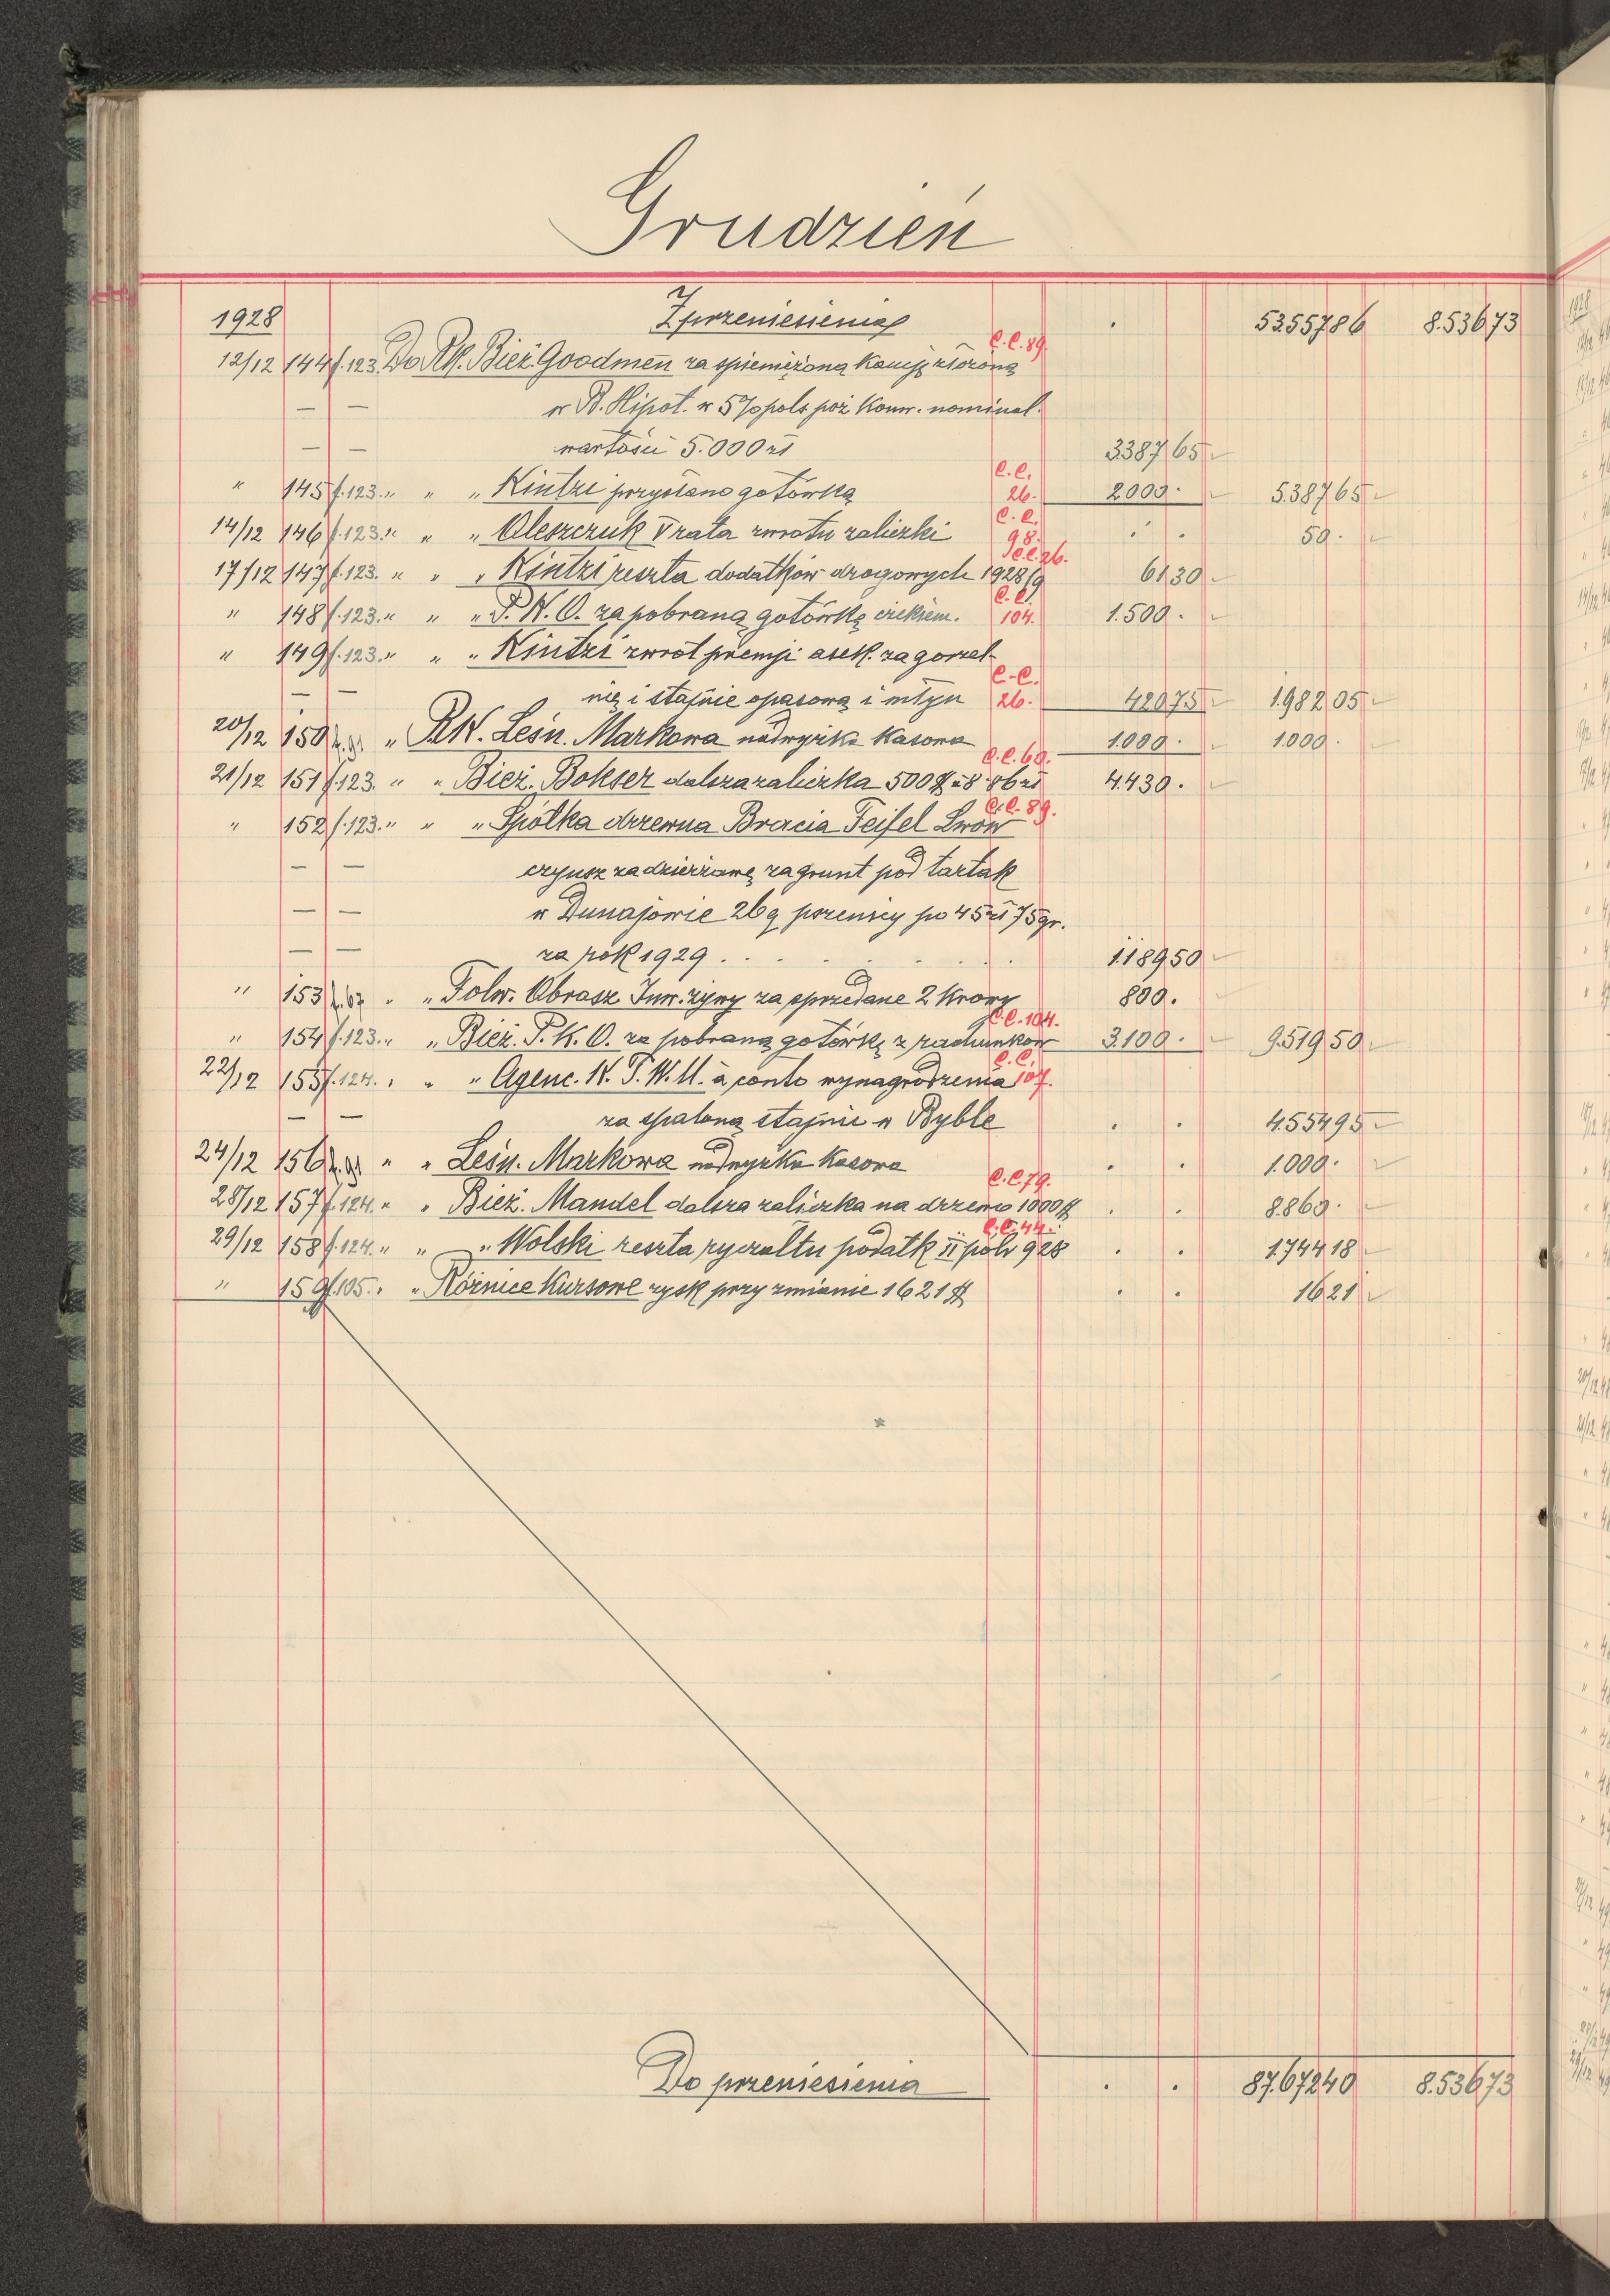 Grudzień
1928 Z przeniesienia . 53.557 86 8.536 73
C.C. 89.
12/12 144 f.123. Do Rk. Bież. Goodmen za spieniężoną kaucję złożoną
— — w B. Hipot. w 5% pols poż Konw. nominal.
— — wartości 5.000 zł 3.387 65
C.C.
" 145 f.123. " " " Kintzi przysłano gotówką 26. 2.000 . 5.387 65
C.C.
14/12 146 f.123. " " " Oleszczuk V rata zwrotu zaliczki 98. . . 50 .
C.C. 26.
17/12 147 f.123. " " " Kintzi reszta dodatków drogowych 1928/9 61 30
C.C.
" 148 f.123. " " " P.K.O. za pobraną gotówkę czekiem. 104. 1.500 .
" 149 f.123. " " " Kintzi zwrot premji asek. za gorzel-
C.C.
— — nię i stajnie opasową i młyn 26. 420 75 1.982 05
20/12 150 " Rk. Leśn. Markowa nadwyżka kasowa 1.000 . 1.000 .
C.C. 60.
21/12 151 f.123. " " Bież. Bokser dalsza zaliczka 500 $ à 8·86 zł 4.430 .
C.C. 89.
" 152 f.123. " " " Spółka drzewna Bracia Feifel Lwów
— — czynsz za dzierżawę za grunt pod tartak
— — w Dunajowie 26 q pszenicy po 45 zł 75 gr.
— — za rok 1929 . . . . . . 1.189 50
" 153 f.67 " " Folw. Obrasz Inw. żywy za sprzedane 2 krowy 800 .
C.C. 104.
" 154 f.123. " " Bież. P.K.O. za pobraną gotówkę z rachunków 3.100 . 9.519 50
C.C.
22/12 155 f.124. " " " Agenc. K.T.W.U. à conto wynagrodzenia 107.
— — za spaloną stajnie w Byble . . 4.554 95
24/12 156 " " Leśn. Markowa nadwyżka kasowa . . 1.000 .
C.C. 79.
28/12 157 f.124. " " Bież. Mandel dalsza zaliczka na drzewo 1000 $ . . 8.860 .
C.C. 44.
29/12 158 f.124. " " " Wolski reszta ryczałtu podatk II półr 928 . . 1.744 18
" 159 f.105. " " Różnice kursowe zysk przy zmianie 1621 $ . . 16 21
Do przeniesienia . . 87.672 40 8.536 73